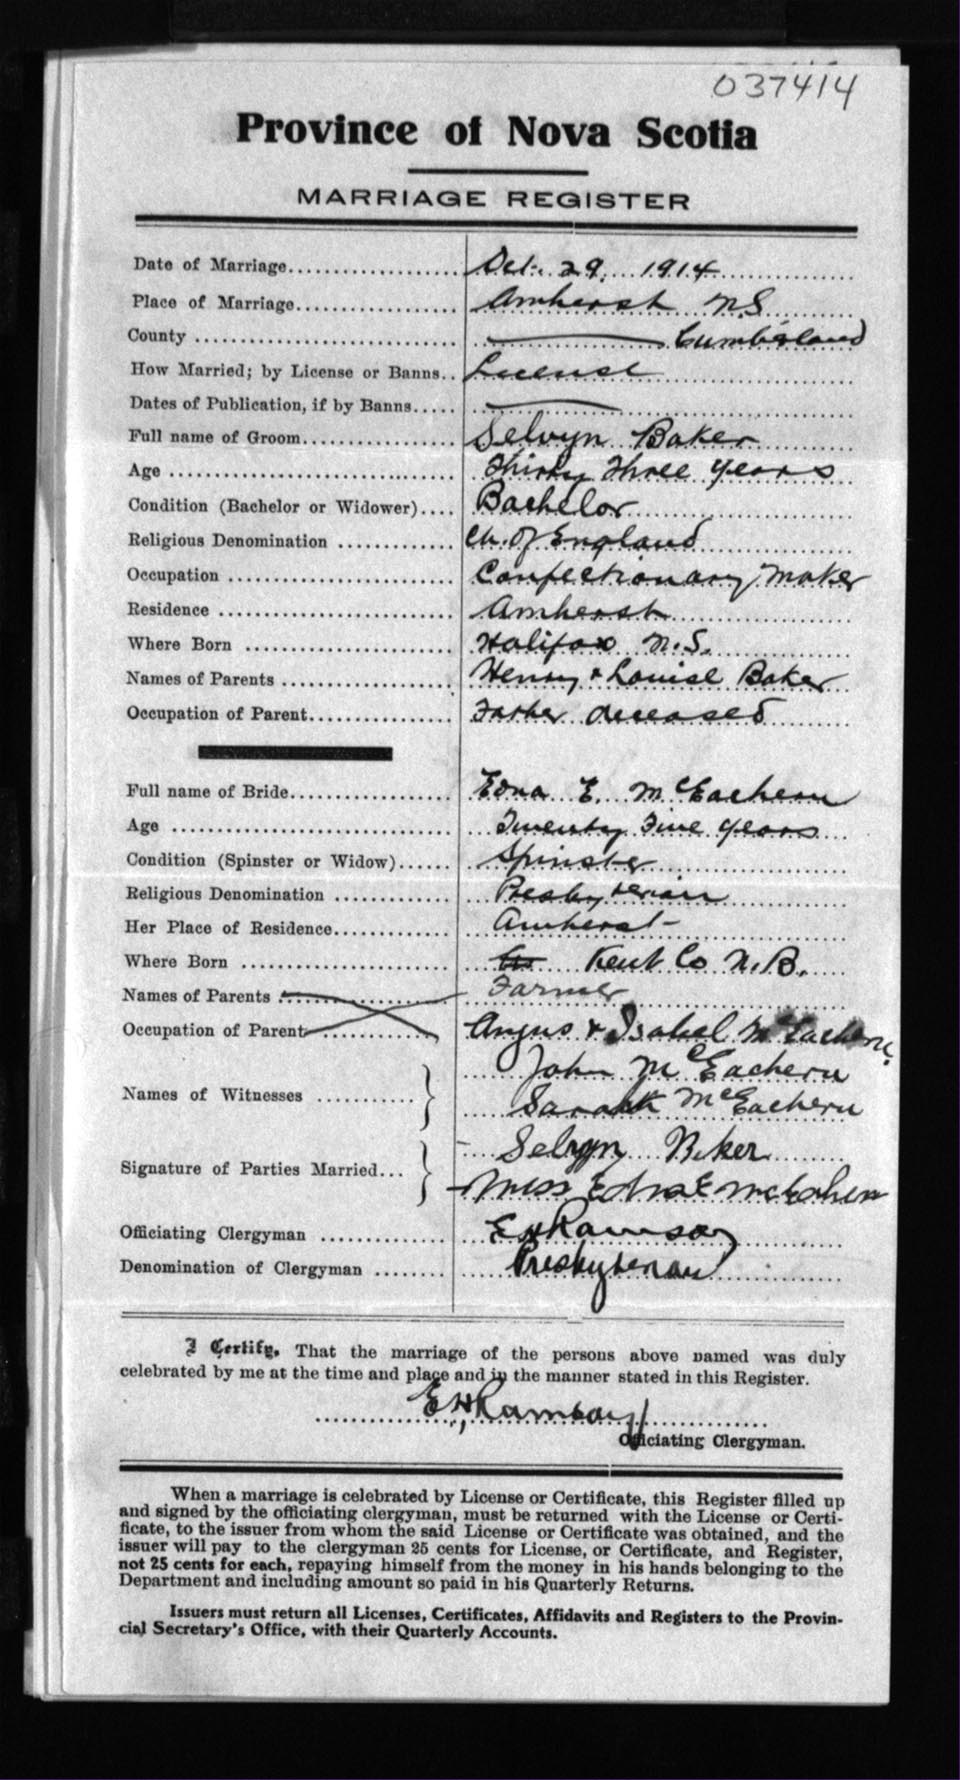 037414
Province of Nova Scotia
MARRIAGE REGISTER
Date of Marriage.................... Oct. 29. 1914
Place of Marriage................... Amherst N.S
County .............................. Cumberland
How Married; by License or Banns.. License
Dates of Publication, if by Banns.....
Full name of Groom................. Selvyn Baker
Age ................................ Thirty Three years
Condition (Bachelor or Widower).... Bachelor
Religious Denomination ............. Ch. of England
Occupation .......................... Confectionary Maker
Residence ........................... Amherst
Where Born ......................... Halifax N.S.
Names of Parents .................... Henry & Louise Baker
Occupation of Parent................. Father deceased
Full name of Bride................... Edna E. McEachern
Age ................................ Twenty Five years
Condition (Spinster or Widow)...... Spinster
Religious Denomination ............. Presbyterian
Her Place of Residence............. Amherst
Where Born ......................... Kent Co N.B.
Names of Parents .................... Farmer
Occupation of Parent................ Angus & Isabel McEachern.
John McEachern
Names of Witnesses ............ }
Sarah McEachern
Selvyn Baker
Signature of Parties Married... }
Miss Edna E McEahern
Officiating Clergyman .............. E H Ramsay
Denomination of Clergyman ........ Presbyterian
I Certify, That the marriage of the persons above named was duly
celebrated by me at the time and place and in the manner stated in this Register.
E H Ramsay
Officiating Clergyman.
When a marriage is celebrated by License or Certificate, this Register filled up
and signed by the officiating clergyman, must be returned with the License or Certi-
ficate, to the issuer from whom the said License or Certificate was obtained, and the
issuer will pay to the clergyman 25 cents for License, or Certificate, and Register,
not 25 cents for each, repaying himself from the money in his hands belonging to the
Department and including amount so paid in his Quarterly Returns.
Issuers must return all Licenses, Certificates, Affidavits and Registers to the Provin-
cial Secretary's Office, with their Quarterly Accounts.